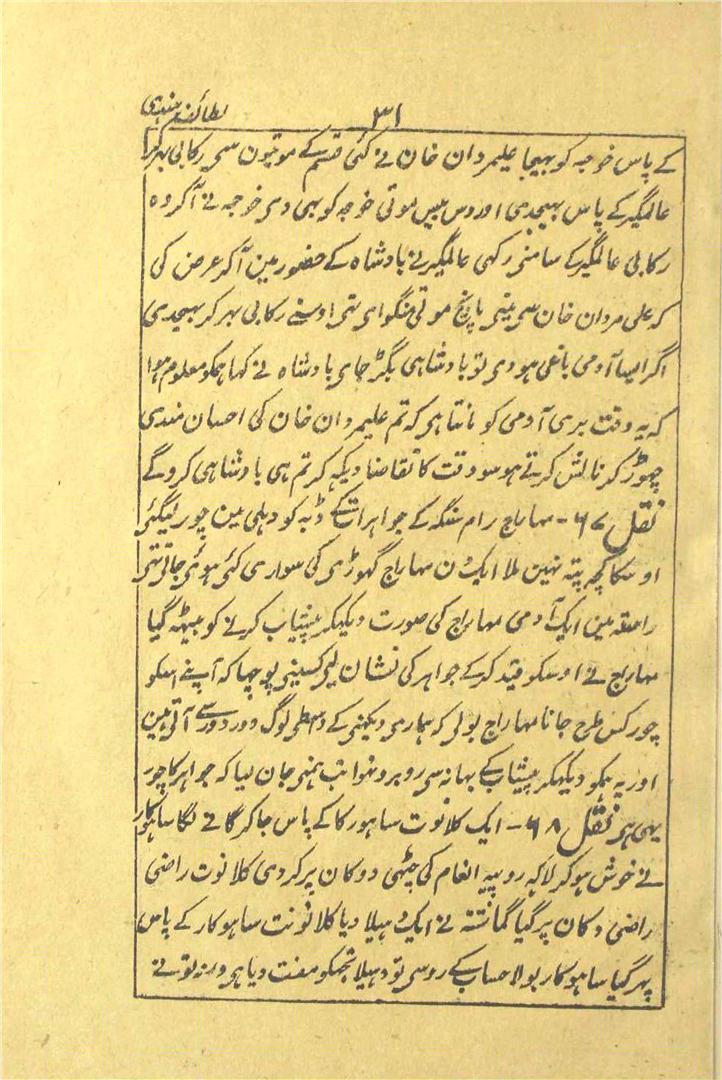 ۳۱ لطائف ہندی
کے پاس خوجہ کو بہیجا علیمردان خان نے کئی قسم کے موتیون سی رکابی بہر کر
عالمگیر کے پاس بہیجدی اور دس بیس موتی خوجہ کو بہی دی خوجہ نے آکر وہ
رکابی عالمگیر کے سامنی رکہی عالمگیر نے بادشاہ کے حضور مین آکر عرض کی
کہ علی مردان خان سی مینی پانچ موتی منگوای تہی اوسنے رکابی بہر کر بہیجدی
اگر ایسا آدمی باغی ہووی تو بادشاہی بگڑ جای بادشاہ نے کہا ہمکو معلوم ہوا
کہ یہ وقت بری آدمی کو مانتا ہی کہ تم علیمردان خان کی احسان مندی
چہوڑ کر نالش کرتے ہو سو وقت کا تقاضا دیکہہ کر تم ہی بادشاہی کروگے
نقل ۶۷ - مہاراج رام سنگہ کے جواہرات کے ڈبہ کو دہلی مین چور لیگئی
اوسکا کچہ پتہ نہین ملا ایکدن مہاراج گہوڑی کی سواری کئی ہوئی جاتی تہی
راستہ مین ایک آدمی مہاراج کی صورت دیکہکر پیشاب کرنے کو بیٹہہ گیا
مہاراج نے اوسکو قید کر کے جواہر کی نشان لی کسینی پوچہا کہ آپنے اسکو
چور کس طرح جانا مہاراج بولی کہ ہماری دیکہنی کے واسطی لوگ دور دور سے آتی ہین
اور یہ ہمکو دیکہکر پیشاب کے بہانہ سی روبرو نہوا تب ہمنی جان لیا کہ جواہر کا چور
یہی ہی نقل ۶۸ - ایک کلانوت ساہوکار کے پاس جا کر گانے لگا ساہوکار
نے خوش ہو کر لاکہہ روپیہ انعام کی چٹہی دوکان پر کردی کلانوت راضی
راضی دکان پر گیا گماشتہ نے ایک دہیلا دیا کلانونت ساہوکار کے پاس
پہر گیا ساہوکار بولا حساب کے روسی تو دہیلا تجہکو مفت دیا ہی ورنہ تو نے